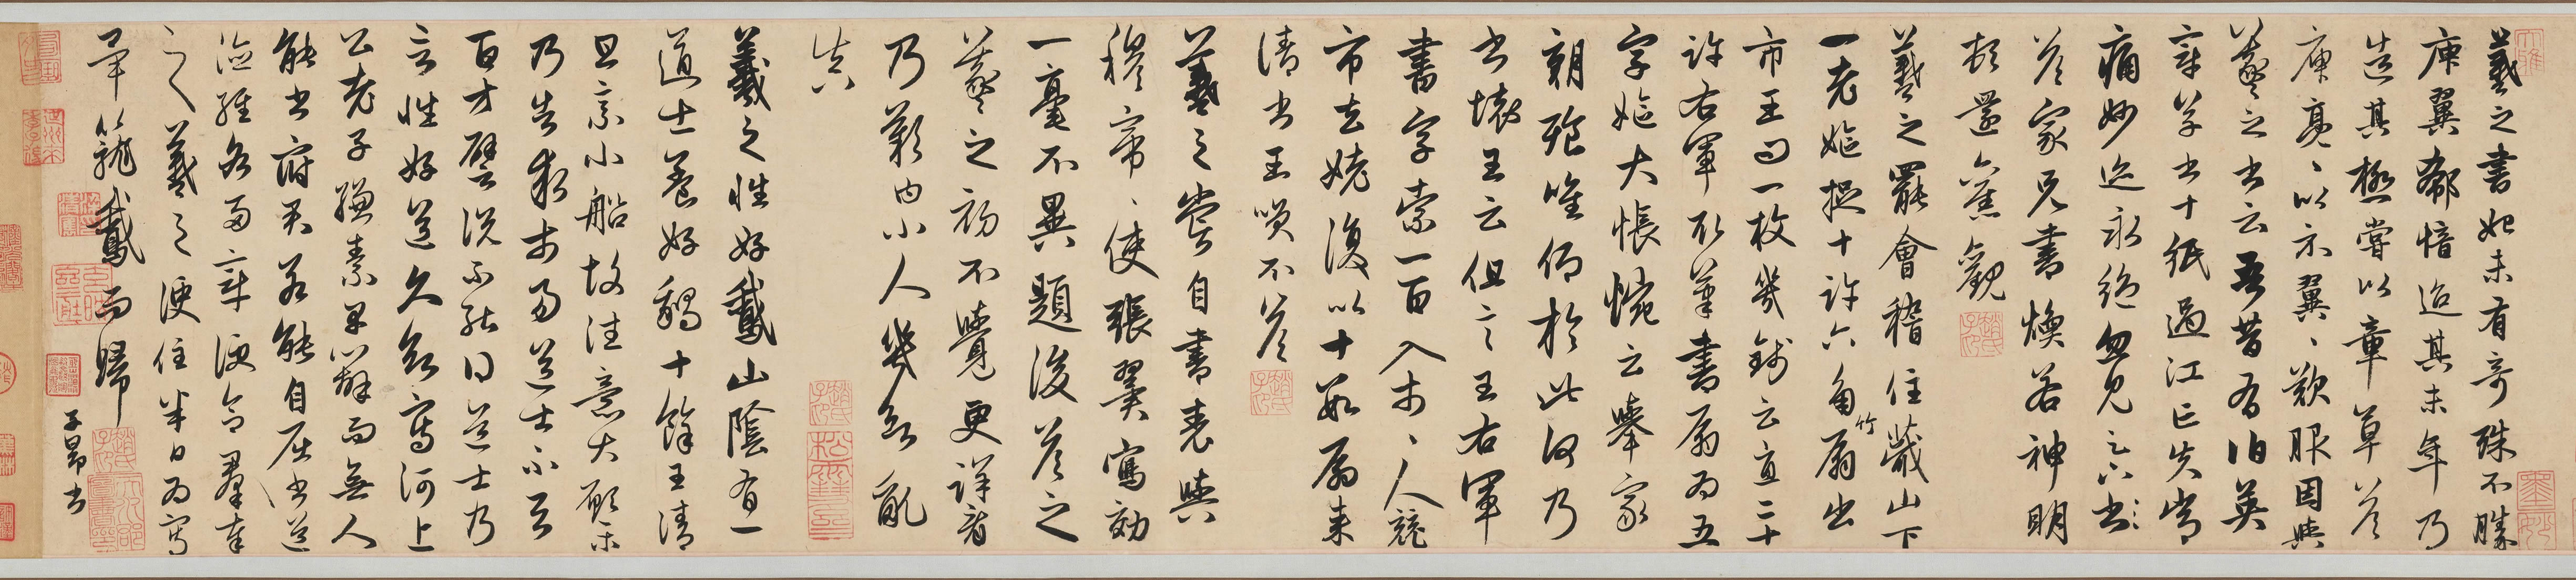 羲之書始未有奇殊不勝
庾翼郗愔迨其末年乃
造其極嘗以章草答
庾亮、以示翼、歎服因與
羲之書云吾昔有伯英
章草書十紙過江亡失常
痛妙迹永絕忽見足下書
答家兄書煥若神明
頓還舊觀
羲之罷會稽住蕺山下
一老嫗捉十許六角竹扇出
市王曰一枚幾錢云直二十
許右軍取筆書扇為五
字嫗大悵惋云舉家
朝飡唯仰於此何乃
書壞王云但言王右軍
書字索一百入市、人競
市去姥復以十數扇來
請書王笑不答
羲之嘗自書表與
穆帝、使張翼寫効
一毫不異題後答之
羲之初不覺更詳看
乃歎曰小人幾欲亂
真
羲之性好鵞山陰有一
道士養好鵝十餘王清
旦乘小船故往意大願樂
乃告求市易道士不與
百方譬說不能得道士乃
言性好道久欲寫河上
公老子縑素早辦而無人
能書府君若能自屈書道
德經各兩章便合羣奉
之羲之便住半日為寫
畢籠鵞而歸
子昂書